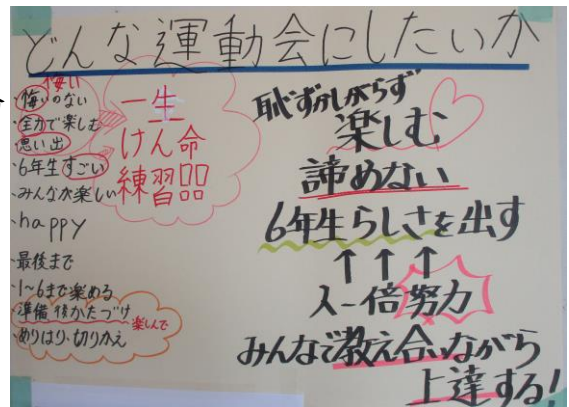 どんな運動会にしたいか
悔い
・悔いのない
・全力で楽しむ
思い出
・6年生すごい
・みんなが楽しい
・happy
・最後まで
・1~6まで楽める
・準備 後かたづけ 楽しんで
・めりはり・切りかえ
一生
けん命
練習
恥ずかしがらず
楽しむ
諦めない
6年生らしさを出す
↑↑↑
人一倍努力
みんなで教え合いながら
上達する!